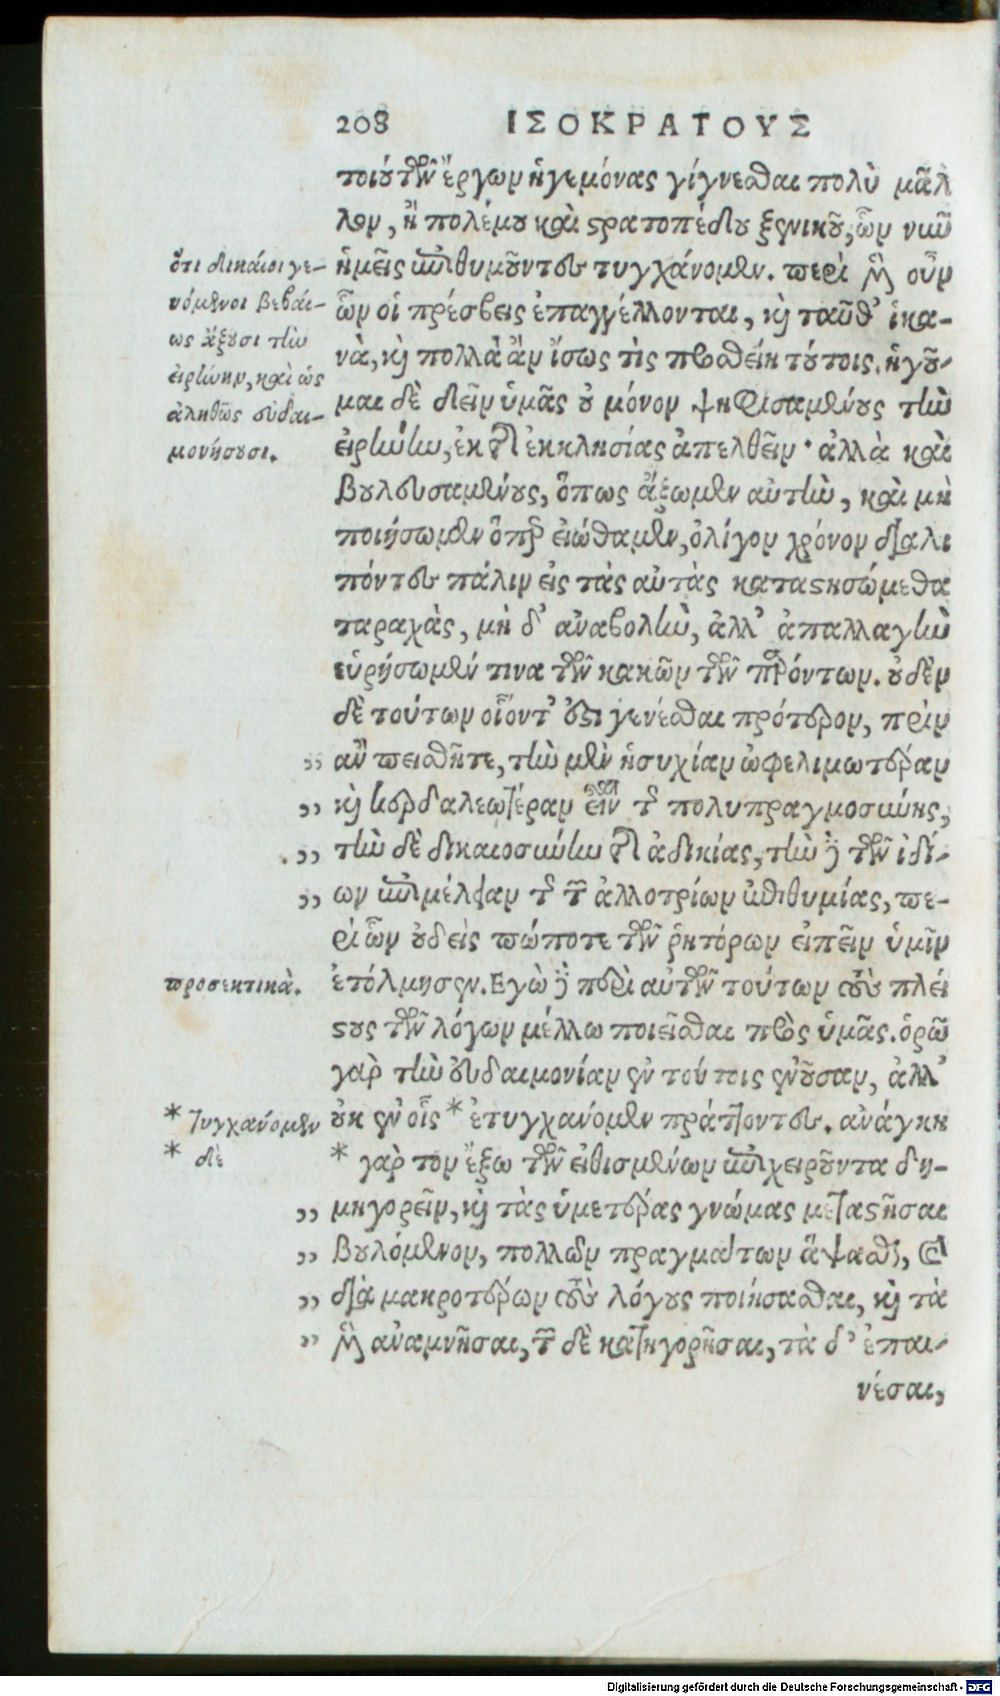 208 ΙΣΟΚΡΑΤΟΥΣ
τοιούτων ἔργων ἡγεμόνας γίγνεσθαι πολὺ μᾶλ
λον, ἢ πολέμου καὶ στρατοπέδου ξενικοῦ, ὧν νῦν
ἡμεῖς ἐπιθυμοῦντες τυγχάνομεν. περὶ μὲν οὖν
ὧν οἱ πρέσβεις ἐπαγγέλλονται, καὶ ταῦθ' ἱκα-
νὰ, καὶ πολλὰ ἂν ἴσως τὶς προσθείη τούτοις. ἡγοῦ-
μαι δὲ δεῖν ὑμᾶς οὐ μόνον ψηφισαμένους τὴν
εἰρήνην, ἐκ τῆς ἐκκλησίας ἀπελθεῖν· ἀλλὰ καὶ
βουλευσαμένους, ὅπως ἄξωμεν αὐτὴν, καὶ μὴ
ποιήσωμεν ὅπερ εἰώθαμεν, ὀλίγον χρόνον διαλι
πόντες πάλιν εἰς τὰς αὐτὰς καταστησώμεθα
ταραχὰς, μὴ δ' ἀναβολὴν, ἀλλ' ἀπαλλαγὴν
εὑρήσωμέν τινα τῶν κακῶν τῶν παρόντων. οὐδὲν
δὲ τούτων οἷόντ' ἐστὶ γενέσθαι πρότερον, πρὶν
,, ἂν πεισθῆτε, τὴν μὲν ἡσυχίαν ὠφελιμωτέραν
,, καὶ κερδαλεωτέραν εἶναι τῆς πολυπραγμοσύνης,
,, τὴν δὲ δικαιοσύνην τῆς ἀδικίας, τὴν δὲ τῶν ἰδί-
,, ων ἐπιμέλειαν τῆς τῶν ἀλλοτρίων ἐπιθυμίας, πε-
ρὶ ὧν οὐδεὶς πώποτε τῶν ῥητόρων εἰπεῖν ὑμῖν
ἐτόλμησεν. Εγὼ δὲ περὶ αὐτῶν τούτων τοὺς πλεί
στους τῶν λόγων μέλλω ποιεῖσθαι πρὸς ὑμᾶς. ὁρῶ
γὰρ τὴν εὐδαιμονίαν ἐν τούτοις ἐνοῦσαν, ἀλλ'
οὐκ ἐν οἷς * ἐτυγχάνομεν πράττοντες. ἀνάγκη
* γὰρ τὸν ἔξω τῶν εἰθισμένων ἐπιχειροῦντα δη-
,, μηγορεῖν, καὶ τὰς ὑμετέρας γνώμας μεταστῆσαι
,, βουλόμενον, πολλῶν πραγμάτων ἅψασθαι, καὶ
,, διὰ μακροτέρων τοὺς λόγους ποιήσασθαι, καὶ τὰ
,, μὲν ἀναμνῆσαι, τῶν δὲ κατηγορῆσαι, τὰ δ' ἐπαι-
νέσαι,
ὅτι δικαίοι γε-
νόμενοι βεβαί-
ως ἄξουσι τὴν
εἰρήνην, καὶ ὡς
ἀληθῶς εὐδαι-
μονήσουσι.
προσεκτικὰ.
* τυγχάνομεν
* δὲ
Digitalisierung gefördert durch die Deutsche Forschungsgemeinschaft - DFG